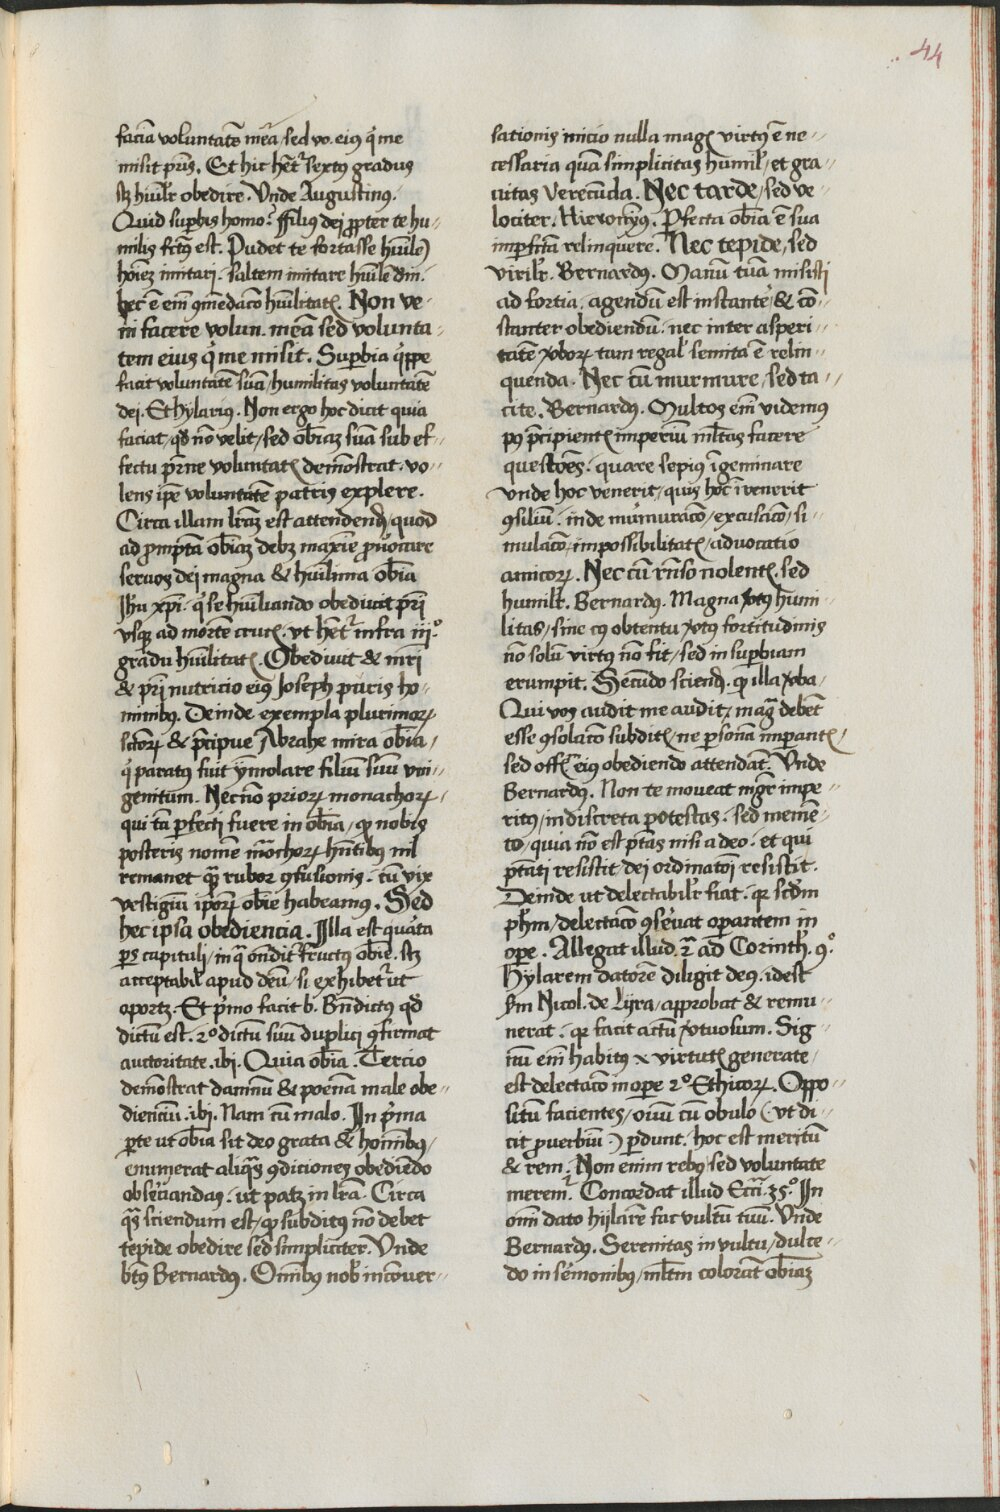 44
faciā voluntatē meā / sed vo. eiꝰ q̇ me
misit pr̄is. Et hic hēt᷑ sextꝰ gradus
sꝫ hūilr̄ obedire. Vnde Augustinꝰ.
Quid suꝑbis homo? ffiliꝰ dej ꝓpter te hu-
milis fctꝰ est. Pudet te fortasse hūilē
hoīez imitarj. saltem imitare hūilē dm̄.
hec ē em̄ ꝯmēdac̄o hūilitatꝭ. Non ve-
ni facere volun. meā sed volunta-
tem eius q̇ me misit. Suꝑbia q̇ppe
facit voluntatē suā / humilitas voluntatē
dej. Et hylariꝰ. Non ergo hoc dicit quia
faciat / qd̄ nō velit / sed ob̄iaꝫ suā sub ef-
fectu pr̄ne voluntatꝭ demōstrat. vo-
lens ip̄e voluntatē patris explere.
Circa illam lr̄aꝫ est attendend̄ / quod
ad ꝓmptā ob̄iaꝫ debꝫ maxīe ꝓuocare
seruos dej magna & hūilima ob̄ia
Jhu xp̄i. q̇ se hūiliando obediuit pr̄i
vsqꝫ ad mortē crucꝭ. vt hēt᷑ infra iij.º
gradu hūilitatꝭ. Obediuit & mr̄i
& pr̄i nutricio eiꝰ Joseph puris ho-
minibꝰ. Deinde exempla plurimoꝝ
sctōꝝ & p̄cipue Abrahe mira ob̄ia /
q̇ paratꝰ fuit ymolare filiū suū vni-
genitum. Necnō prioꝝ monachoꝝ /
qui tā ꝑfecti fuere in ob̄ia / ꝙ nobis
posteris nomē mōachoꝝ hn̄tibꝰ nil
remanet qᷓꝫ rubor ꝯfusionis. cū vix
vestigiū ip̄oꝝ ob̄ie habeamꝰ. Sed
hec ipsa obediencia. Illa est quārta
ps̄ capituli / in qᷓ on̄dit᷑ fructꝰ ob̄ie. sꝫ
acceptabil̄ apud deū / si exhibet᷑ ut
oportꝫ. Et p̄mo facit b. Bn̄dictꝰ qd̄
dictū est. 2º dictū suū duplicj ꝯfirmat
auctoritate. ibj. Quia ob̄ia. Tercio
demōstrat damnū & poenā male obe-
dienciū. ibj. Nam cū malo. In p̄ma
ꝑte ut ob̄ia sit deo grata & hoīnibꝰ /
enumerat aliqᷓs ꝯdiciones obediēdo
obseruandas. ut patꝫ in lr̄a. Circa
qᷓs sciendum est / ꝙ subditꝰ nō debet
tepide obedire sed simpliciter. Vnde
bt̄ꝰ Bernardꝰ. Om̄ibꝰ nob̄ in cōuer-
sationis inicio nulla magꝭ virtꝰ ē ne-
cessaria quā simplicitas humil̄ / et gra-
uitas verecūda. Nec tarde / sed ve-
lociter. Hieronimꝰ. Ꝑfecta ob̄ia ē sua
imꝑfctā relinquere. Nec tepide, sed
virilr̄. Bernardꝰ. Manū tuā misisti
ad fortia. agendū est instante & cō-
stanter obediendū. nec inter asperi-
tatē v̓boꝝ tam regal̄ semita ē relin-
quenda. Nec cū murmure, sed ta-
cite. Bernardꝰ. Multos em̄ videmꝰ
pꝰ p̄cipientꝭ imperiū ml̄tas facere
questōes. quare sepiꝰ īgeminare
vnde hoc venerit / quis hoc īvenerit
ꝯsiliū. inde mūrmurac̄o / excusac̄o / si-
mulac̄o impossibilitatꝭ / aduocatio
amicoꝝ. Nec cū rn̄so nolentꝭ. sed
humilr̄. Bernardꝰ. Magna v̓tꝰ humi-
litas / sine cꝰ obtentu v̓tꝰ fortitudinis
nō solū virtꝰ nō fit / sed in suꝑbiam
erumpit. Secūdo sciend̄. ꝙ illa v̓ba /
Qui vos audit me audit, magᷓ debēt
esse ꝯsolac̄o subditꝭ / ne ꝑsonā imꝑantꝭ /
sed offꝭ eiꝰ obediendo attendāt. Vnde
Bernardꝰ. Non te moueat mgr̄ impe-
ritꝰ / indiscreta potestas. sed memē-
to / quia nō est ptās nisi a deo. et qui
ptāti resistit dei ordinatōi resistit.
Deinde ut delectabilr̄ fiat. qꝛ scd̄m
ph̄m / delectac̄o ꝯseruat oꝑantem in
oꝑe. Allegat illud. 2ᷓ ad Corinth̄. 9º.
Hylarem datorē diligit deꝰ. idest
sm̄ Nicol. de Lyra / approbat & remu-
nerat. qꝛ facit actū v̓tuosum. Sig-
nū em̄ habitꝰ x virtutꝭ generate /
est delectac̄o in oꝑe 2º Ethicoꝝ. Oppo-
sitū facientes / oiuū cū obulo (vt di-
cit ꝓuerbiū) ꝑdunt. hoc est meritū
& rem. Non enim rebꝰ sed voluntate
merem᷑. Concordat illud Ecc̄i. 35.º In
omī dato hijlarē fac vultū tuū. Vnde
Bernardꝰ. Serenitas in vultu / dulce-
do in sermonibꝰ / ml̄tm colorāt ob̄iaꝫ